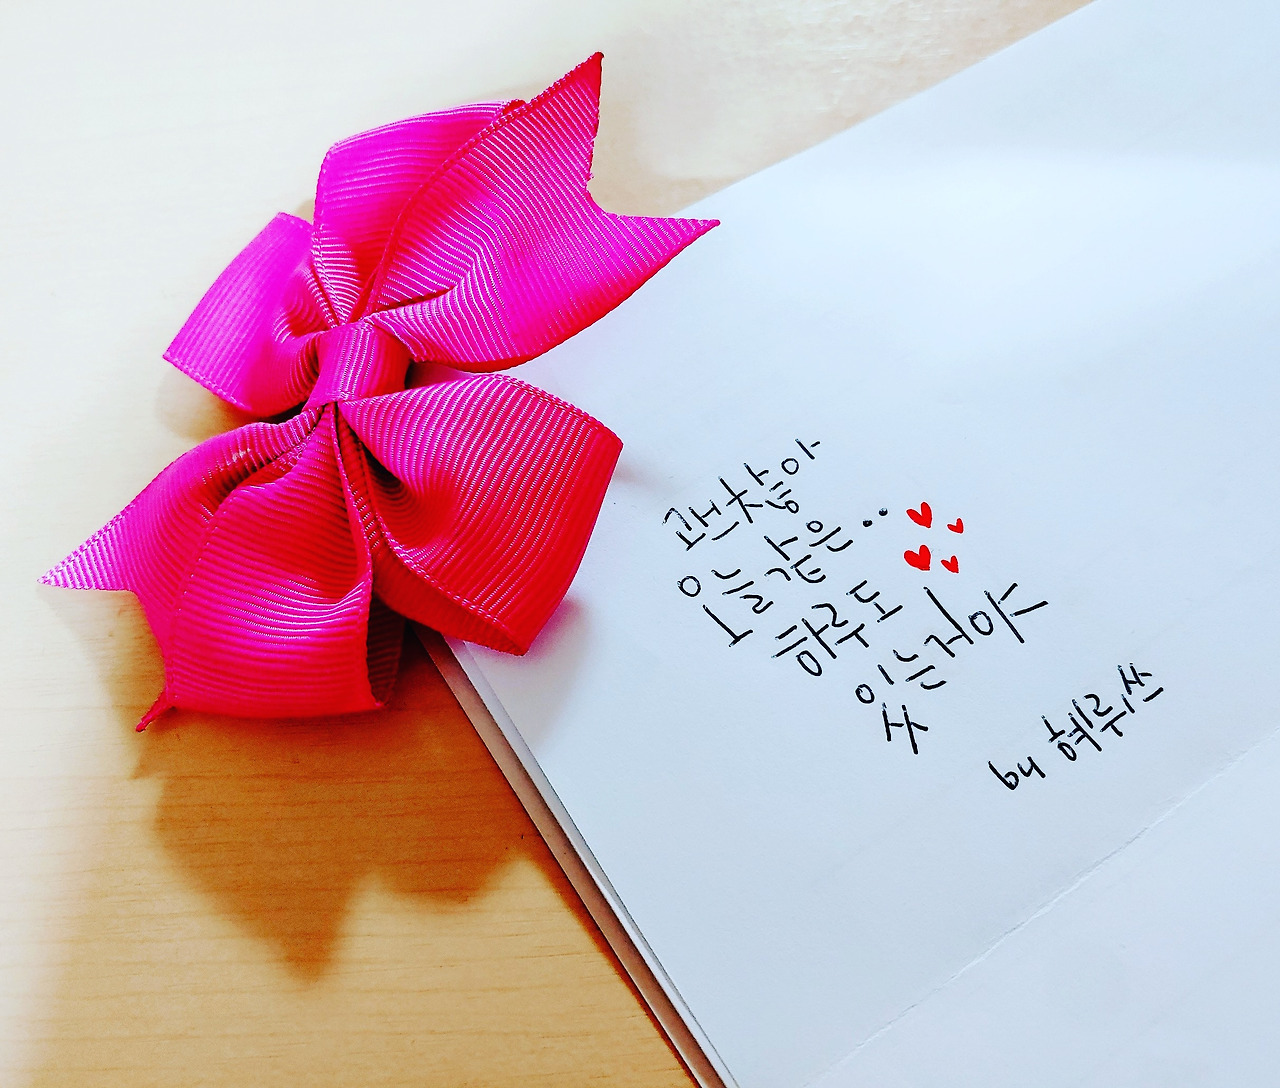 괜찮아
오늘 같은..
하루도
있는거야
by 혜뤼쓰